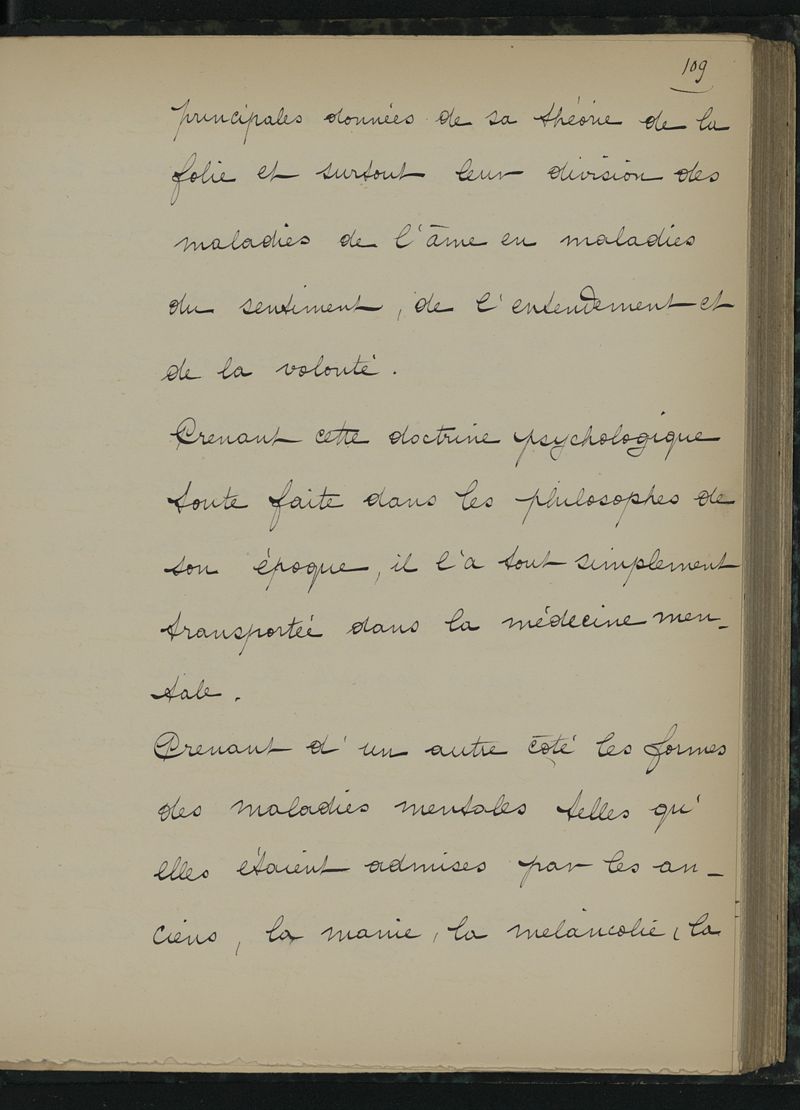 109
principales données de sa théorie de la
folie et surtout leur division des
maladies de l'âme en maladies
du sentiment, de l'entendement et
de la volonté.
Prenant cette doctrine psychologique
toute faite dans les philosophes de
son époque, il l'a tout simplement
transportée dans la médecine men-
tale.
Prenant d'un autre côté les formes
des maladies mentales telles qu'
elles étaient admises par les an-
ciens, la manie, la mélancolie, la